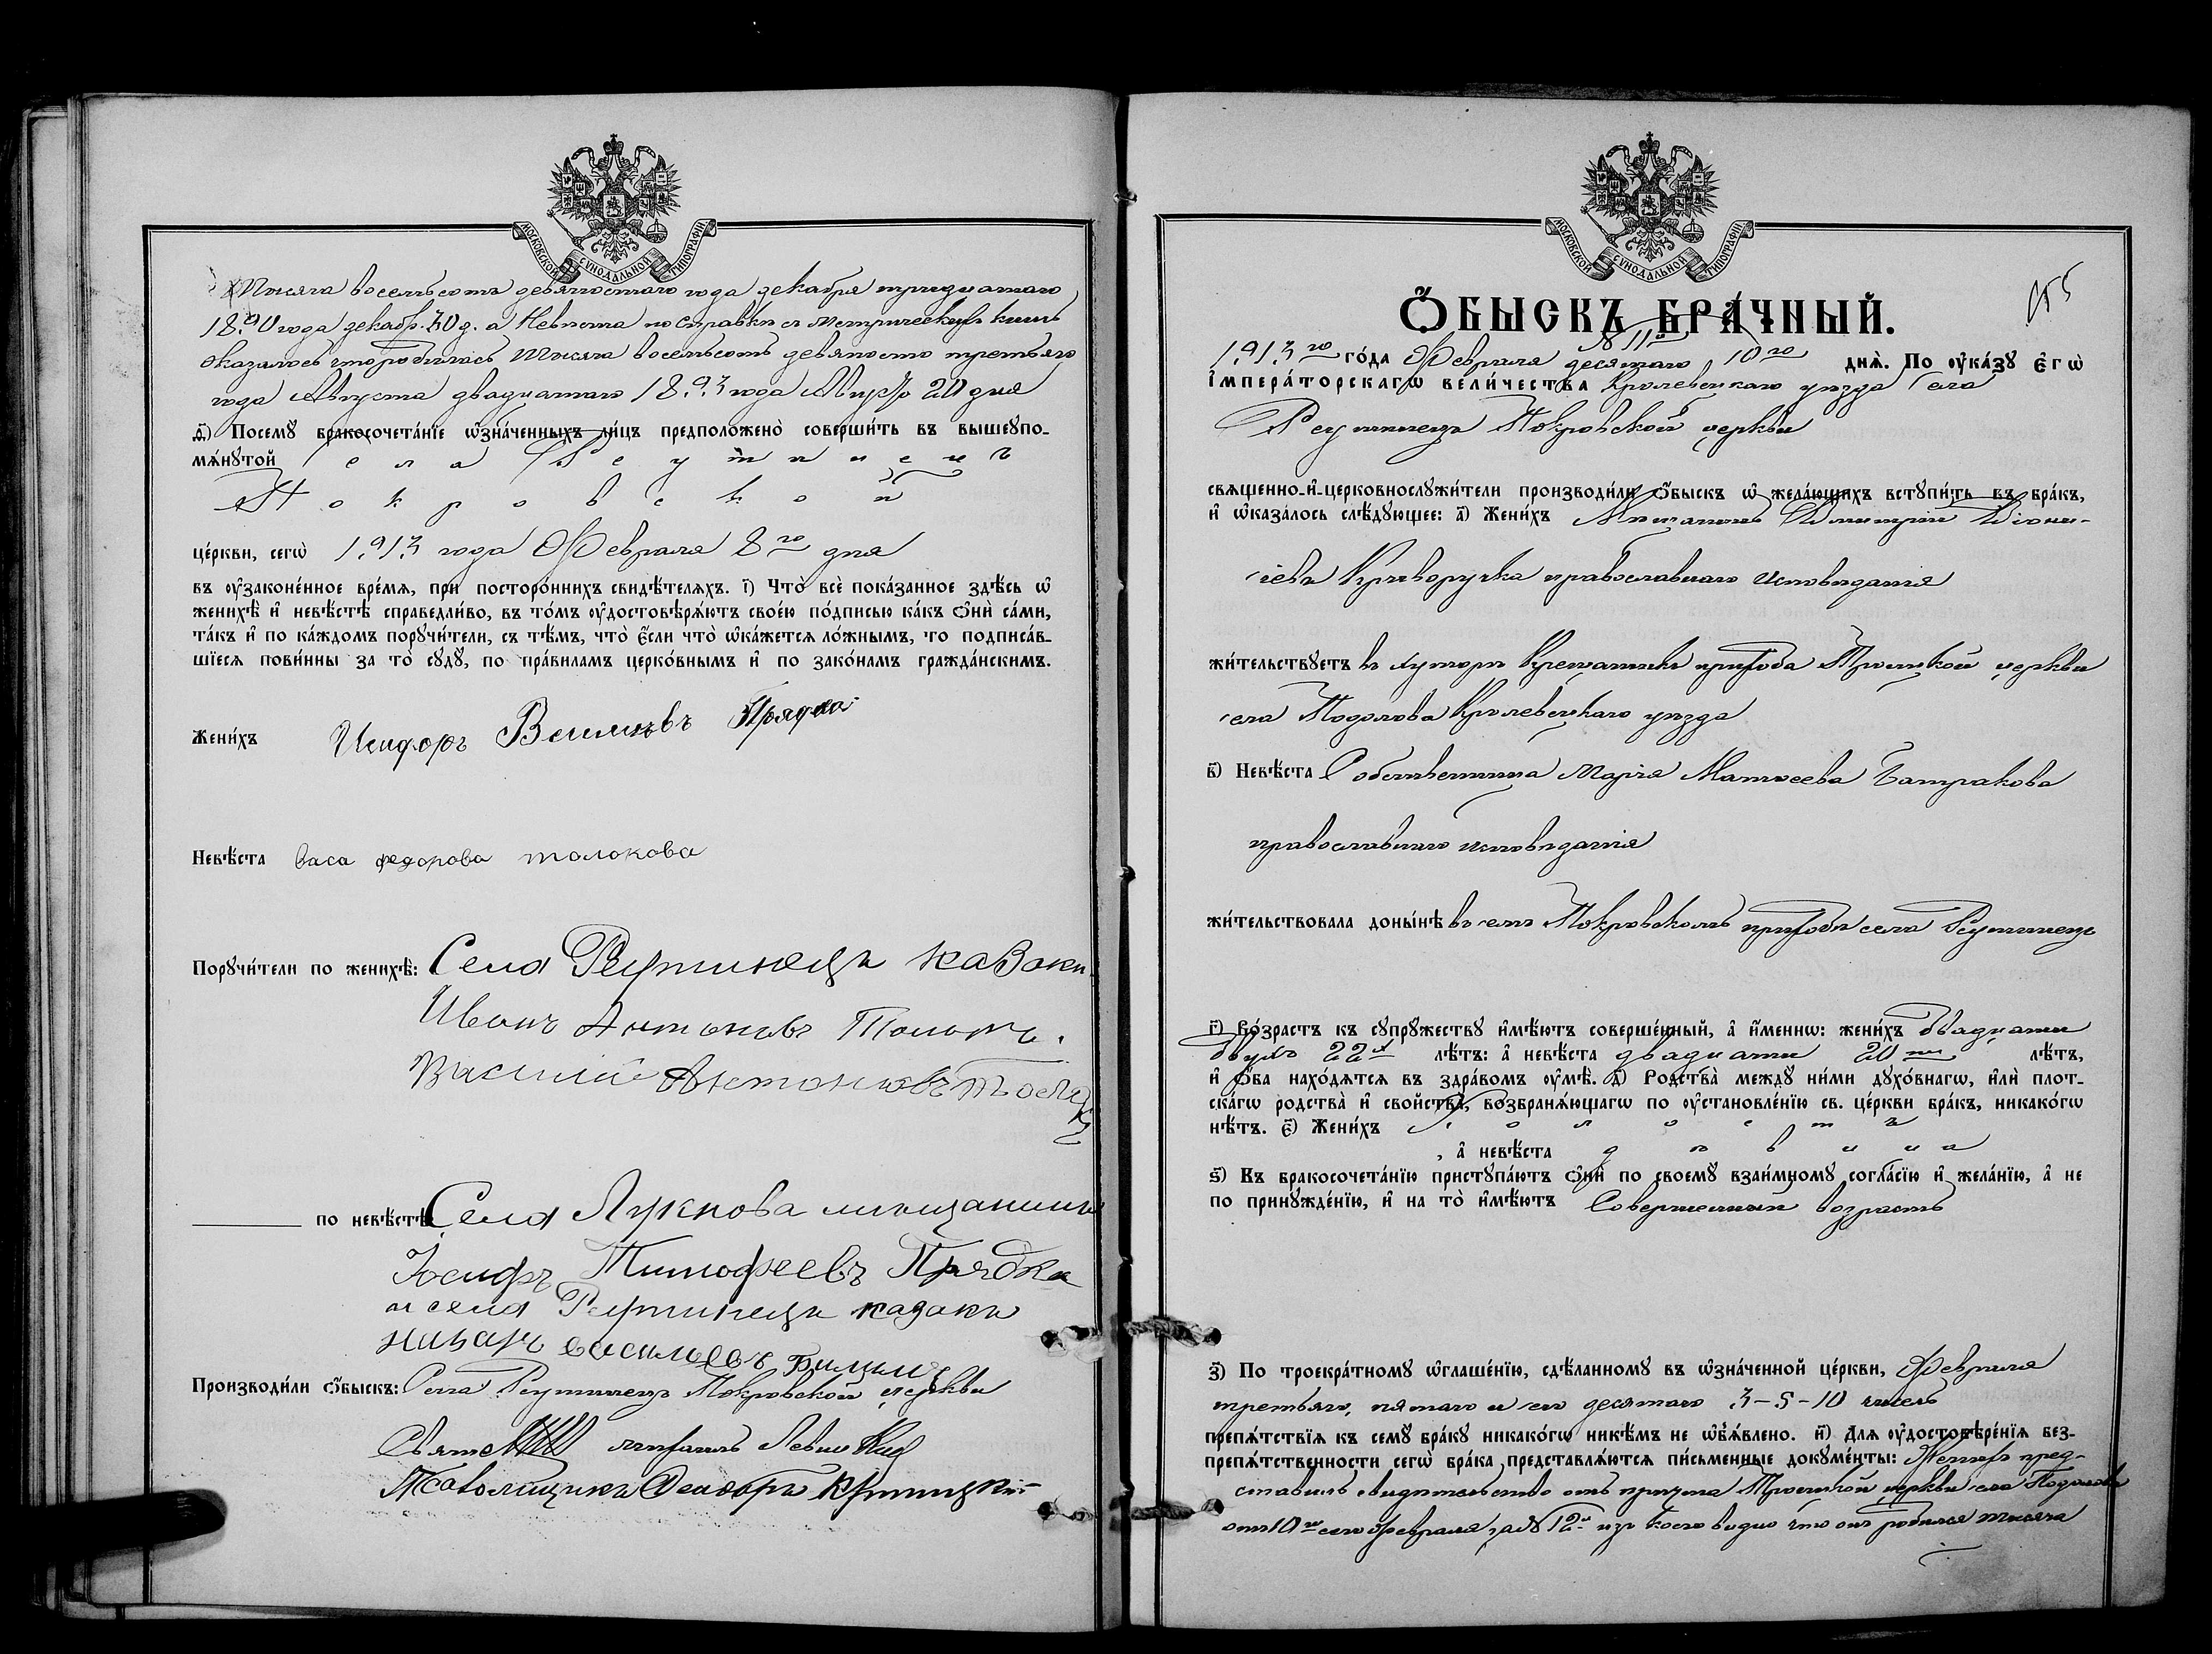 МОСКОВСКОЙ СѴНОДАЛЬНОЙ ТИПОГРАФІИ
Тысяча восемьсотъ девяностаго года декабря тридцатаго
1890 года декабр. 30 д. а Невѣста по справкѣ съ метрическихъ книгъ
оказалось что родилась тысяча восемьсотъ девяносто третьяго
года Августа двадцатаго 1893 года Августа 20 дня
д҃) Посемꙋ бракосочета́нїе ѡ҆зна́ченныхъ ли́цъ предположено̀ соверши́ть въ вышеꙋпо-
мѧ́нꙋтой села Реутинецъ
Покровской
це́ркви, сегѡ̀ 1913 года Февраля 8го дня
въ ᲂу҆законе́нное вре́мѧ, при посторо́ннихъ свидѣ́телѧхъ. і҃) Что̀ всѐ пока́занное здѣ́сь ѡ҆
женихѣ̀ и҆ невѣ́стѣ справедли́во, въ то́мъ ᲂу҆достовѣрѧ́ютъ свое́ю по́дписью ка́къ ѻ҆нѝ са́ми,
та́къ и҆ по ка́ждомъ порꙋчи́тели, съ тѣ́мъ, что̀ є҆́сли что̀ ѡ҆ка́жетсѧ ло́жнымъ, то подписа́в-
шїесѧ пови́нны за то̀ сꙋдꙋ̀, по пра́виламъ церко́внымъ и҆ по зако́намъ гражда́нскимъ.
Жени́хъ Исидоръ Васильевъ Прядка
Невѣ́ста васа федорова толокова
Порꙋчи́тели по женихѣ̀: Села Реутинецъ казаки
Иванъ Антоновъ Толокъ.
Василій Антоновъ Толокъ
по невѣ́стѣ: Села Лукнова мѣщанинъ
Іосифъ Тимофеевъ Прядка
и села Реутинецъ казакъ
Назаръ васильевъ
Производи́ли ѻ҆́быскъ: Села Реутинецъ Покровской церкви
Свящ Михаилъ Левицкій
Псаломщикъ Ѳеодоръ Критицкій
МОСКОВСКОЙ СѴНОДАЛЬНОЙ ТИПОГРАФІИ
Ѻ҆́БЫСКЪ БРА́ЧНЫЙ.
№ 11й
1913го го́да Февраля десятаго 10го днѧ̀. По ᲂу҆ка́зꙋ Є҆гѡ̀
І҆мпера́торскагѡ вели́чества Кролевецкаго уѣзда Села
Реутинецъ Покровской церкви
свѧщенно-и҆-церковнослꙋжи́тели производи́ли ѻ҆́быскъ ѡ҆ жела́ющихъ встꙋпи́ть въ бра́къ,
и҆ ѡ҆каза́лось слѣ́дꙋющее: а҃) Жени́хъ Мѣщанинъ Димитрій Діони-
сіевъ Криворучка православнаго исповѣданія
жи́тельствꙋетъ въ хуторѣ Крещатикѣ прихода Троицкой церкви
села Подолова Кролевецкаго уѣзда
в҃) Невѣ́ста Собственница Марія Матѳеева Батракова
православнаго исповѣданія
жи́тельствовала доны́нѣ въ семъ Покровскомъ приходѣ села Реутинецъ
г҃) Во́зрастъ къ сꙋпрꙋ́жествꙋ и҆мѣ́ютъ соверше́нный, а҆ и҆́меннѡ: жени́хъ двадцати
двухъ 22х лѣ́тъ: а҆ невѣ́ста двадцати 20ти лѣ́тъ,
и҆ ѻ҆́ба нахо́дѧтсѧ въ здра́вомъ ᲂу҆мѣ̀. д҃) Родства̀ междꙋ̀ ни́ми дꙋхо́внагѡ, и҆лѝ плот-
ска́гѡ родства̀ и҆ свойства̀, возбранѧ́ющагѡ по ᲂу҆становле́нїю св. це́ркви бра́къ, никако́гѡ
нѣ́тъ. є҃) Жени́хъ Холостъ
, а҆ невѣ́ста дѣвица
ѕ҃) Къ бракосочета́нїю пристꙋпа́ютъ ѻ҆нѝ по своемꙋ̀ взаи́мномꙋ согла́сїю и҆ жела́нїю, а҆ не
по принꙋжде́нїю, и҆ на то̀ и҆мѣ́ютъ Совершенный возрастъ
з҃) По троекра́тномꙋ ѡ҆глаше́нїю, сдѣ́ланномꙋ въ ѡ҆зна́ченной це́ркви, Февраля
третьяго, пятаго и сего десятаго 3-5-10 чиселъ
препѧ́тствїѧ къ семꙋ̀ бра́кꙋ никако́гѡ никѣ́мъ не ѡ҆б̾ѧ́влено. и҃) Длѧ ᲂу҆достовѣре́нїѧ без-
препѧ́тственности сегѡ̀ бра́ка представлѧ́ютсѧ пи́сьменные докꙋме́нты: Женихъ пред-
ставилъ свидѣтельство отъ причта Троицкой церкви села Подолова
отъ 10го сего Февраля за № 12м изъ коего видно что онъ родился тысяча